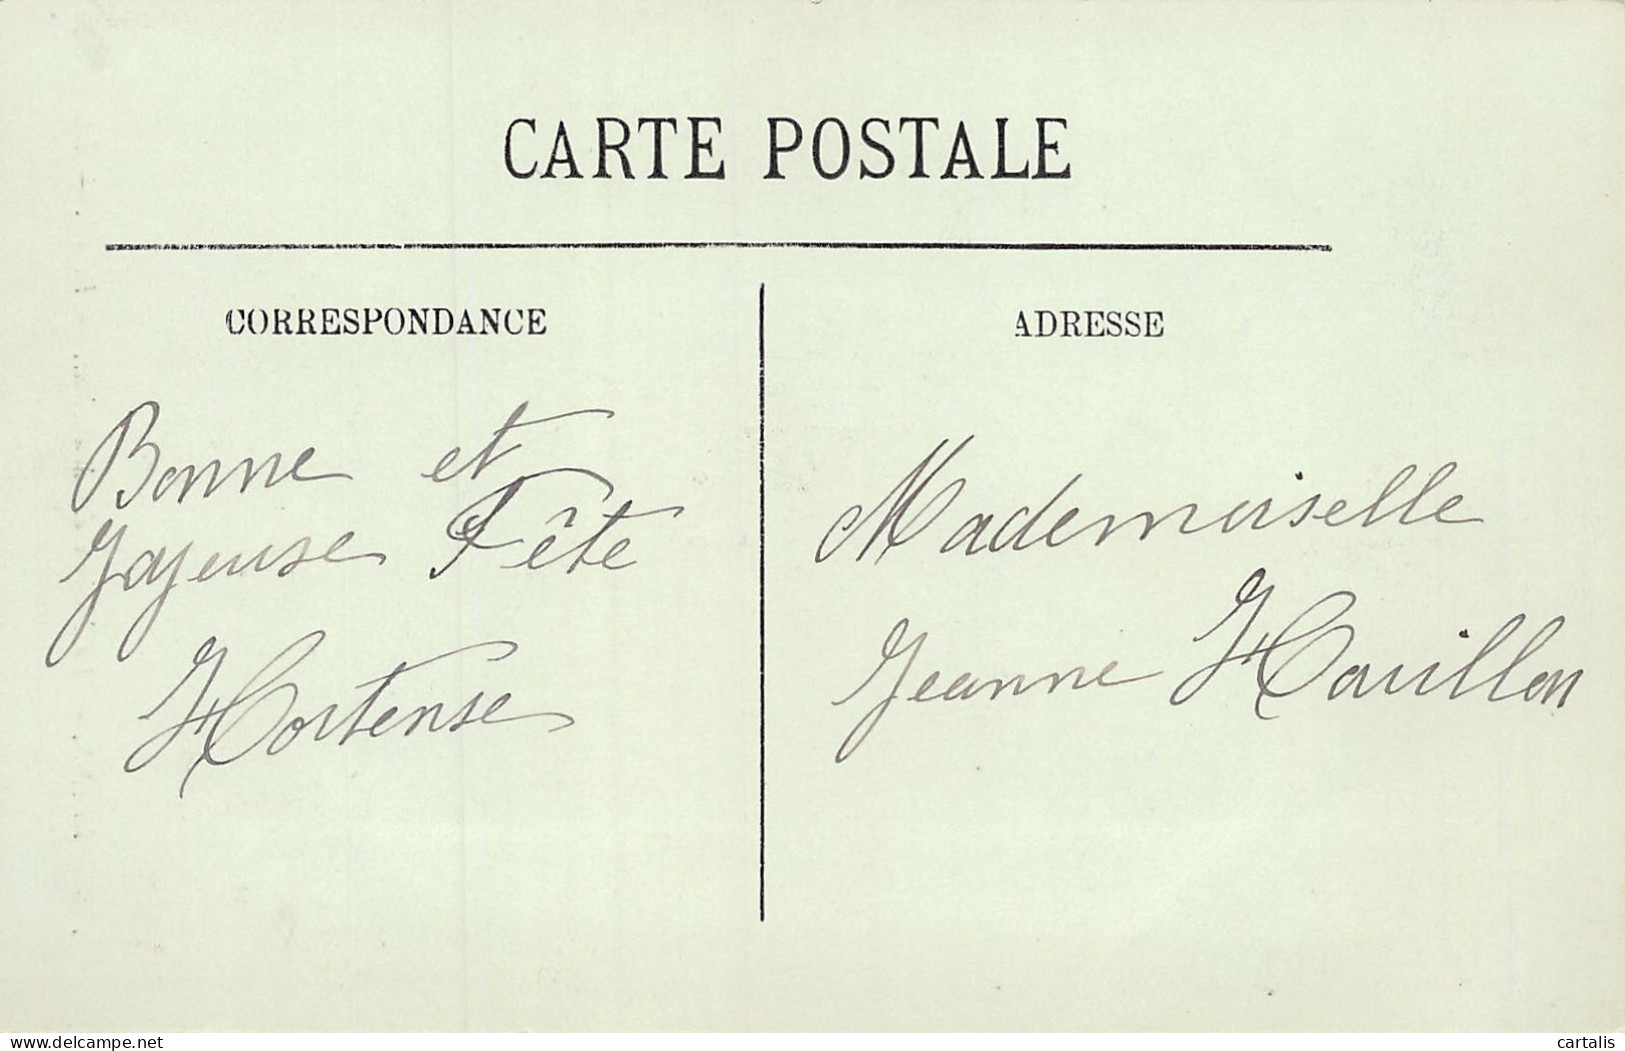 CARTE POSTALE
CORRESPONDANCE
Bonne et
Joyeuse Fête
Hortense
ADRESSE
Mademoiselle
Jeanne Houillon
delcampe.net
cartalis